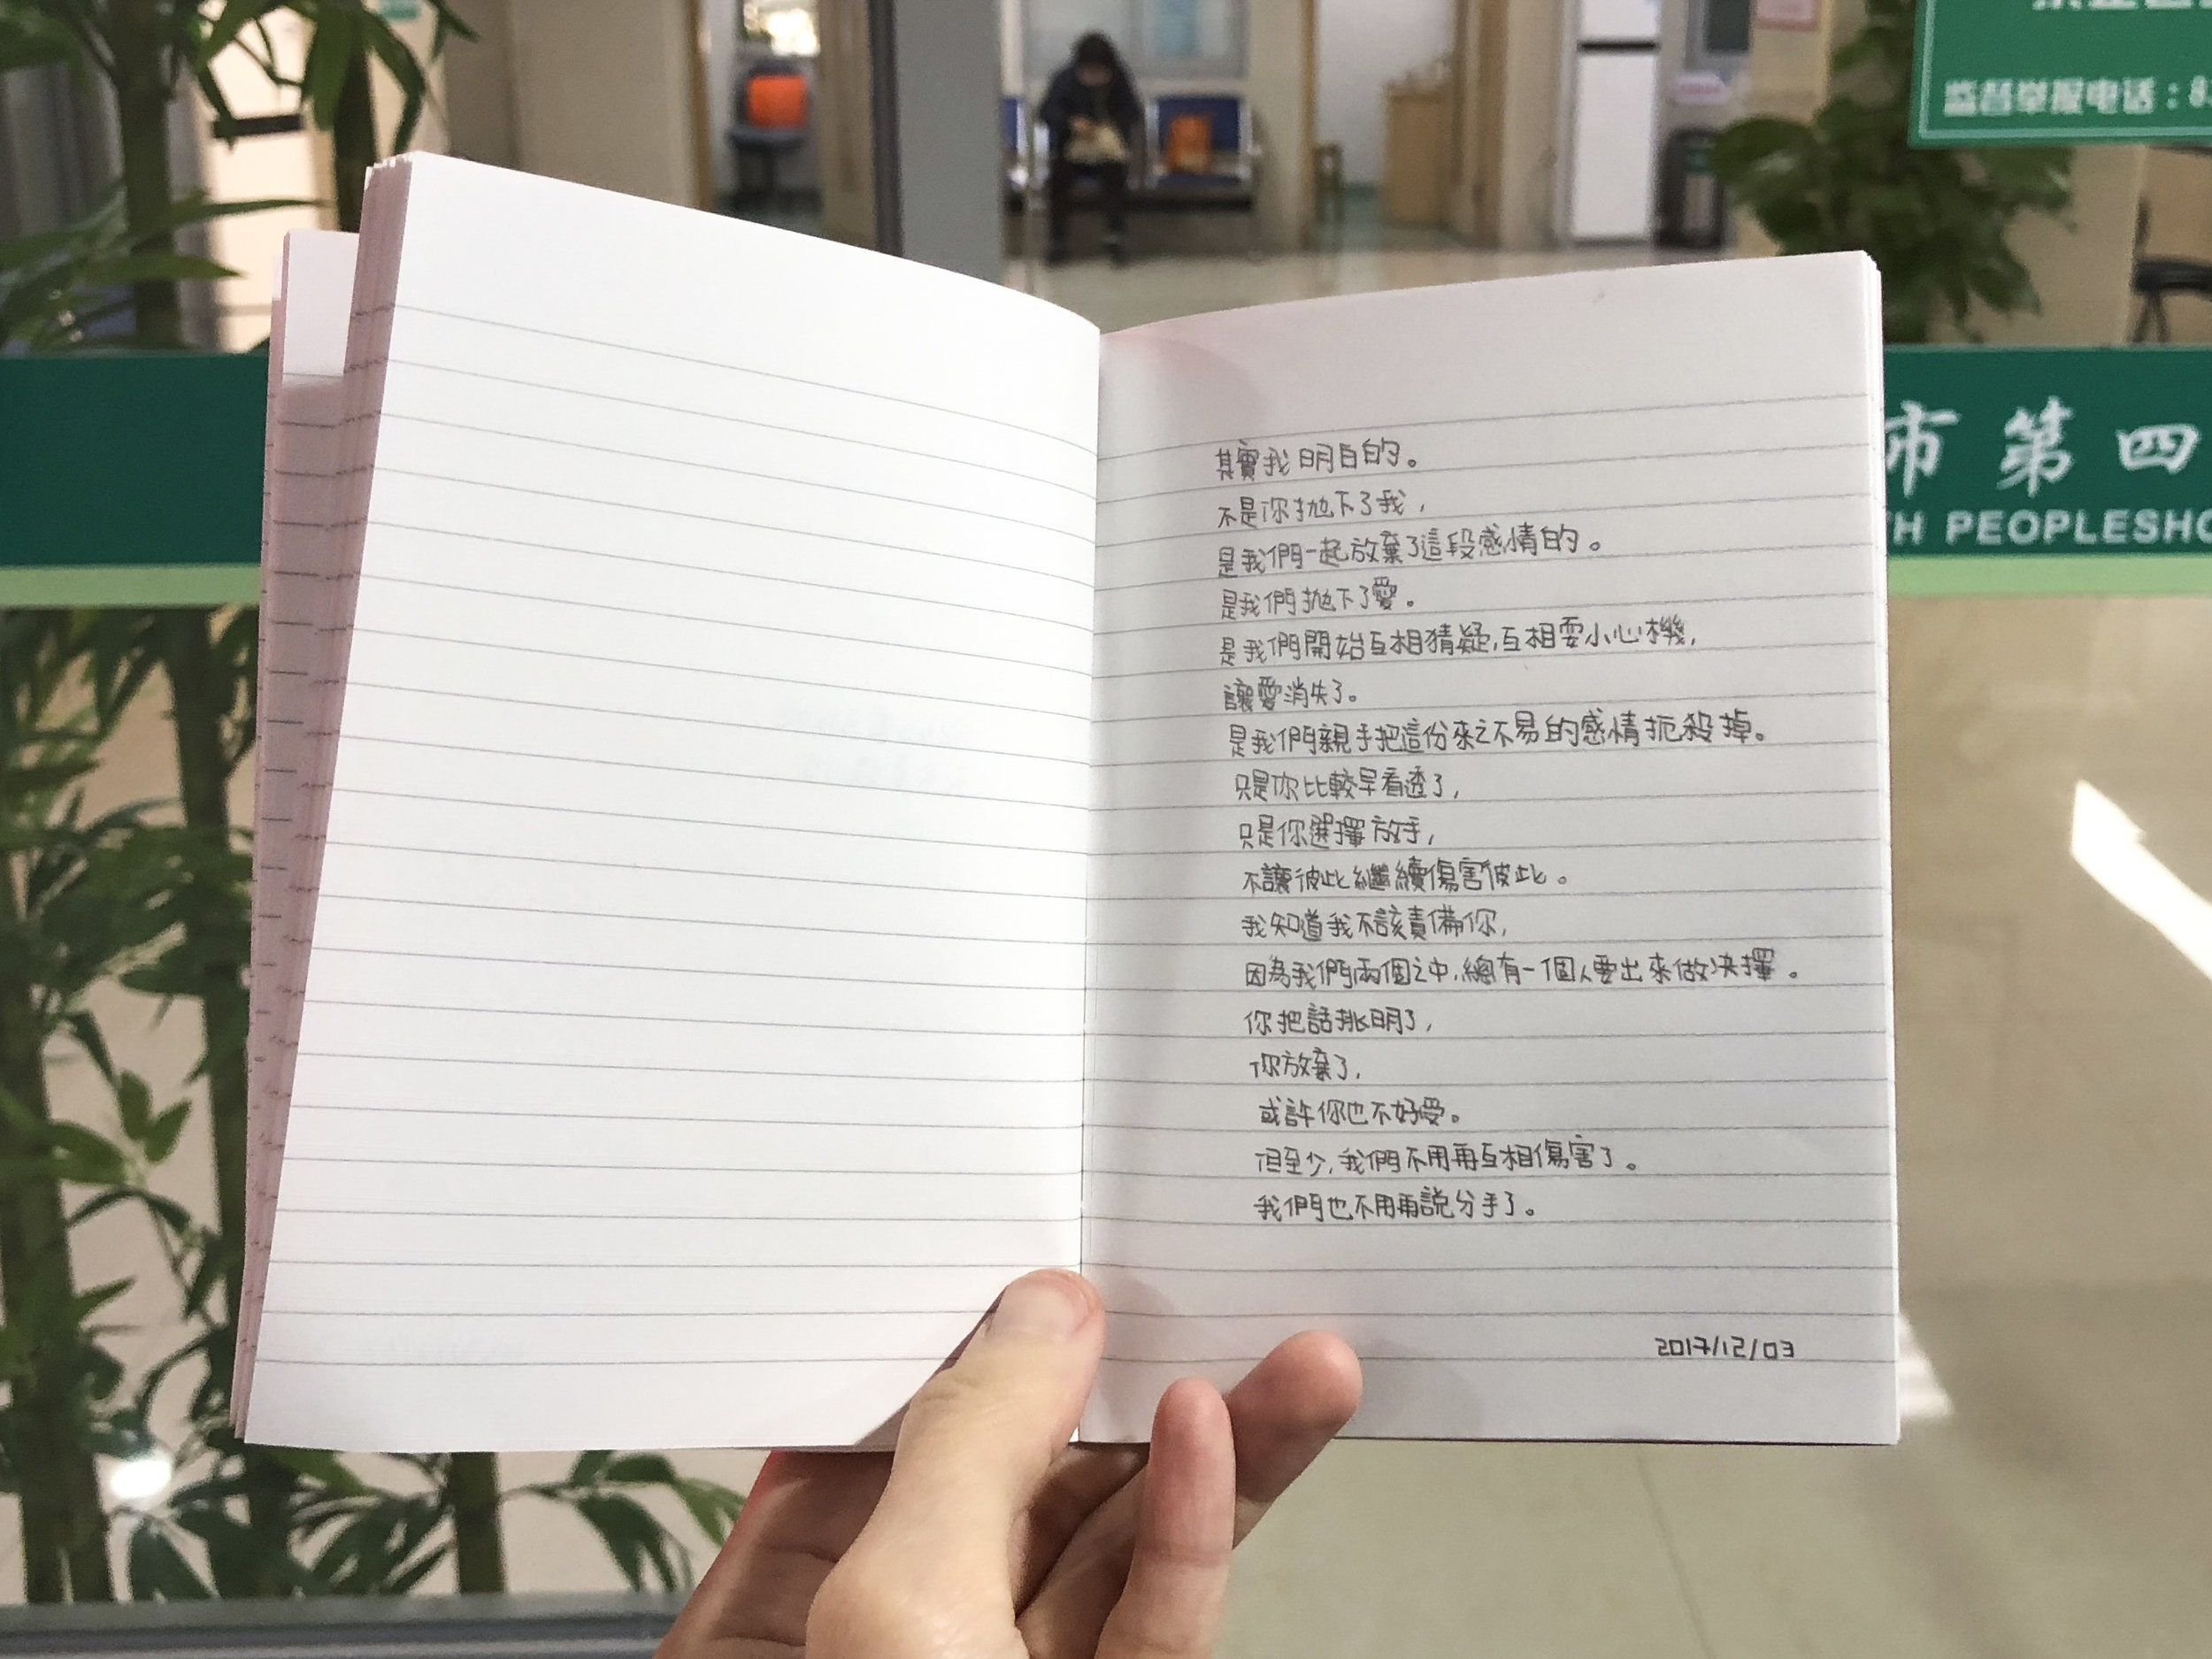 监督举报电话:8
市第四
TH PEOPLESHO
其實我明白的。
不是你拋下了我,
是我們一起放棄了這段感情的。
是我們拋下了愛。
是我們開始互相猜疑,互相耍小心機,
讓愛消失了。
是我們親手把這份來之不易的感情扼殺掉。
只是你比較早看透了,
只是你選擇放手,
不讓彼此繼續傷害彼此。
我知道我不該責備你,
因為我們兩個之中,總有一個人要出來做決擇。
你把話挑明了,
你放棄了,
或許你也不好受。
但至少,我們不用再互相傷害了。
我們也不用再說分手了。
2017/12/03